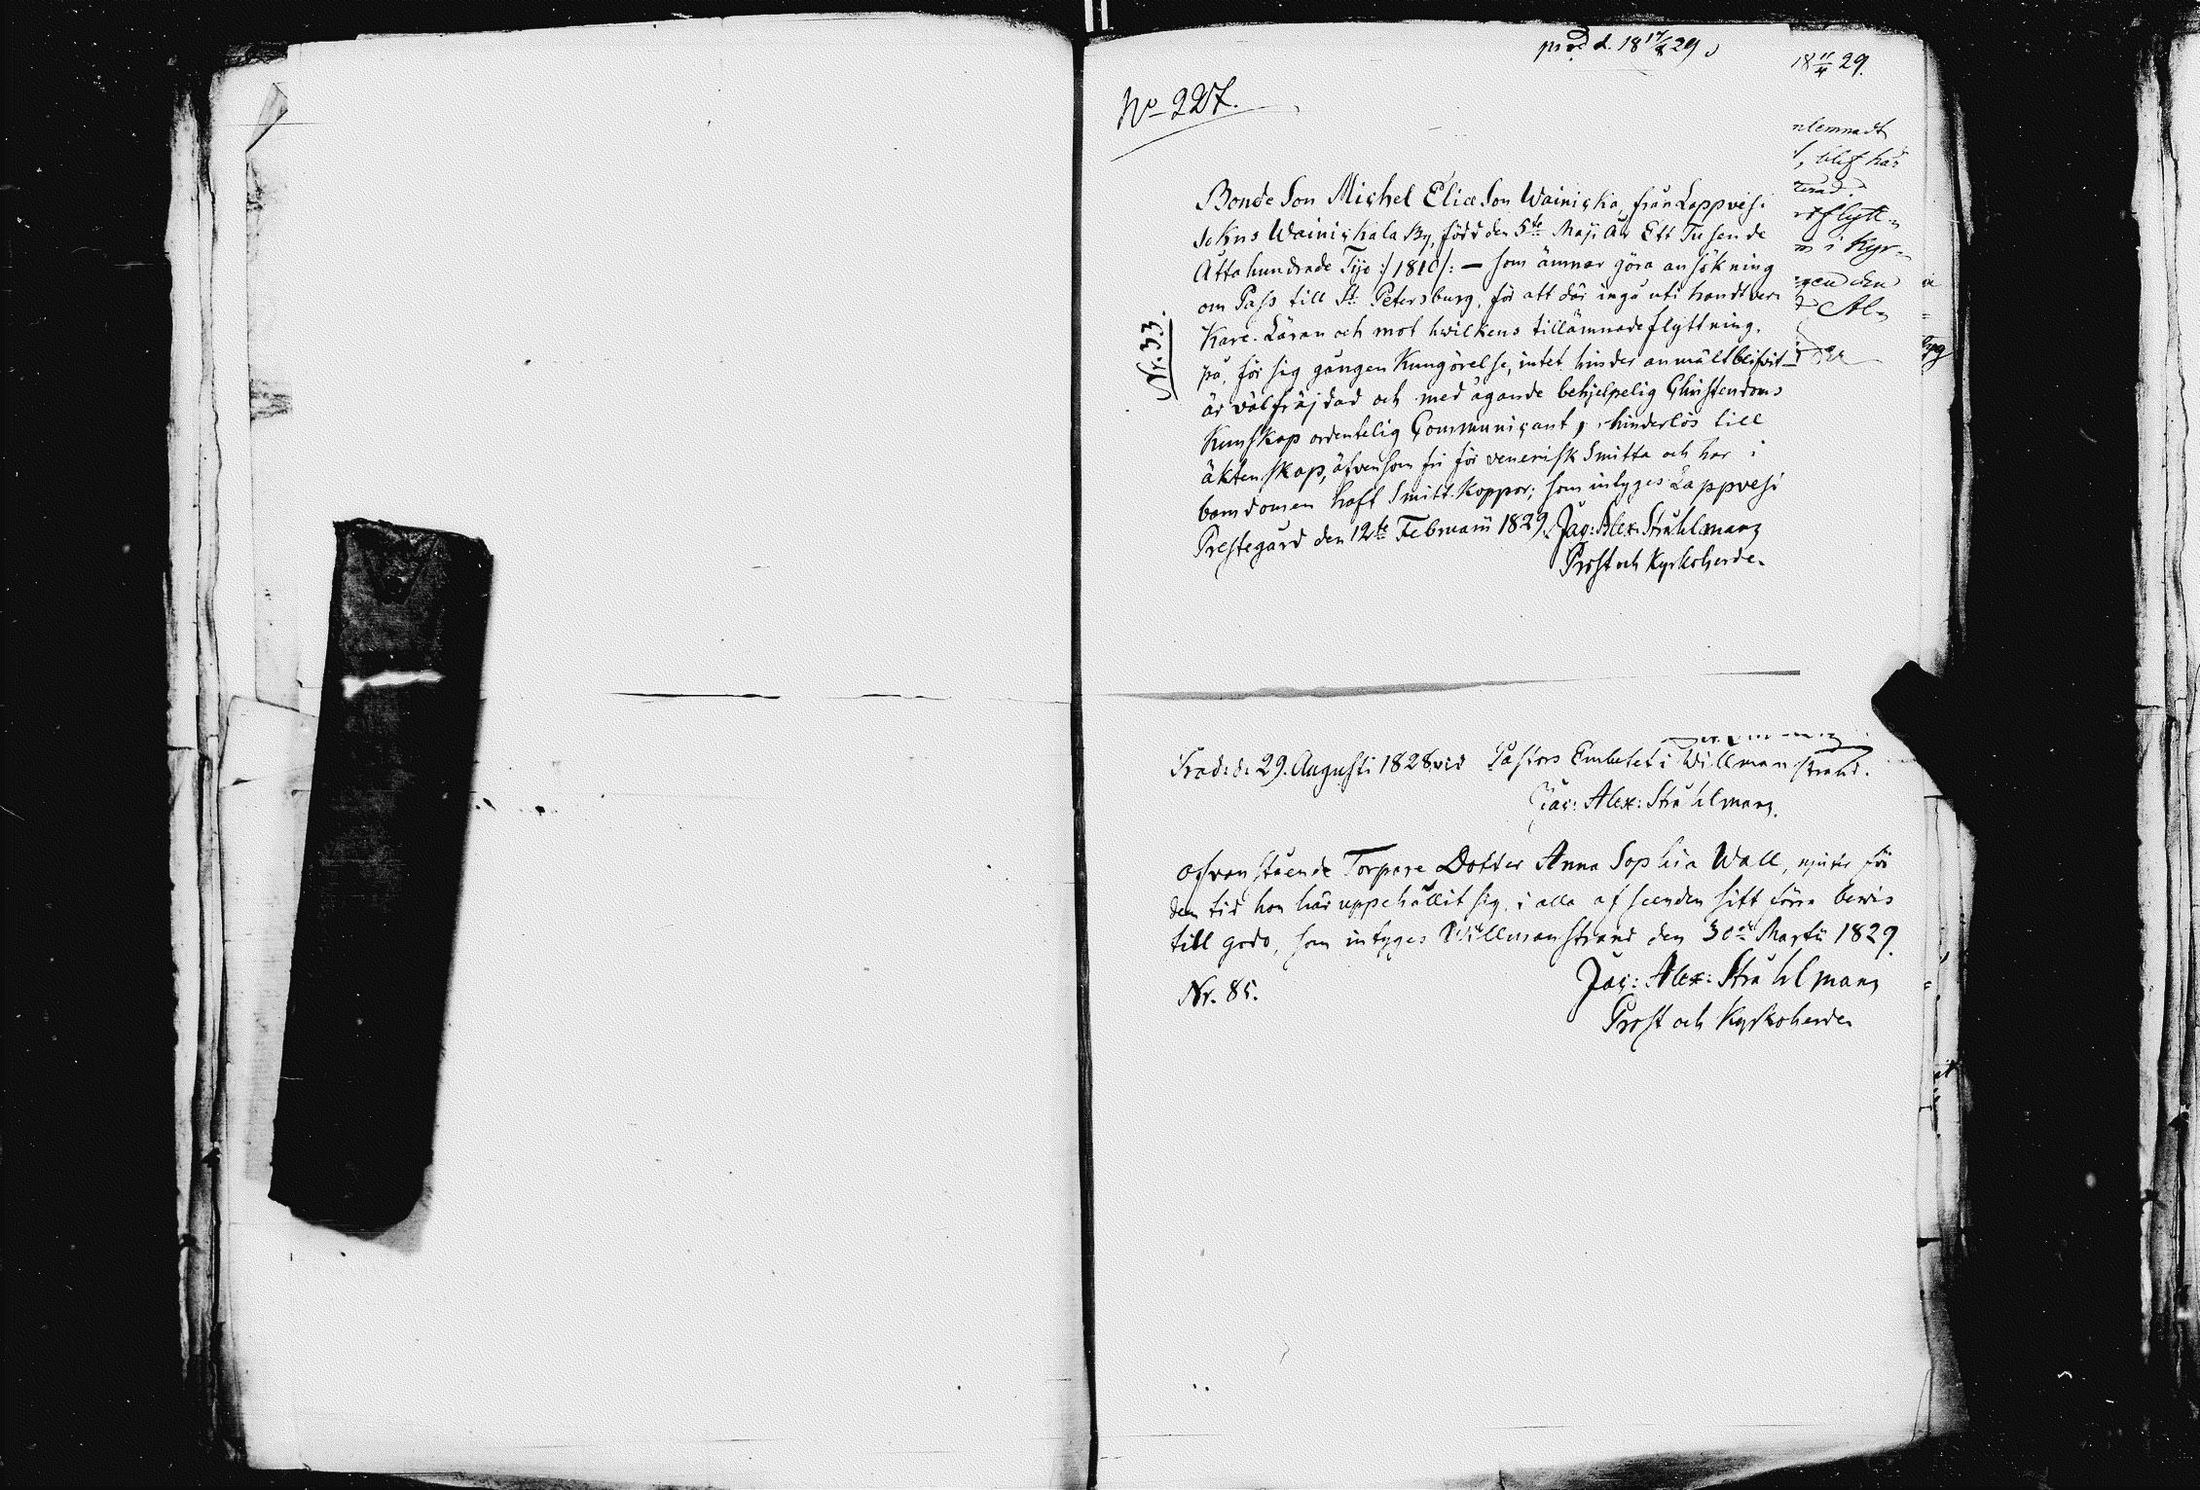 prod d. 18 17/4 29
18 11/4 29.
No 227.
nlemnadt
blef här
Bonde Son Michel Eliæ Son Wainicka, från Lappvesi
Sokns Wainickala By, född den 5te Maji År Ett Tusende
Åttahundrade Tijo :/1810/: — som ämnar göra ansökning
om Pass till St. Petersburg, för att där ingå uti handtver
Kare Läran och mot hwilkens tillämnade flyttning,
på, för sig gången Kungörelse, intet hinder anmält blifvit —
är välfräjdad och med ägande behjelpelig Christendoms
Kunskap ordentelig Communicant, hinderlös till
äktenskap, äfvensom fri för venerisk Smitta och har i
barndomen haft Smitt Koppor; som intyges Lappvesi
Prestegård den 12te Februarii 1829. Jac: Alex: Stråhlmann
Prost och Kyrkoherde.
Nr. 33.
flytt=
i Kyr=
Prod: d: 29. Augusti 1828 vid Pastors Embetet i Willmanstrand.
Jac: Alex: Stråhlmann.
Ofvanstående Torpare Dotter Anna Sophia Wall, njuter för
den tid hon här uppehållit sig, i alla afseenden sitt förra bevis
till godo, som intyges Willmanstrand den 30de Martii 1829.
Nr. 85.
Jac: Alex: Stråhlmann
Prost och Kyrkoherde